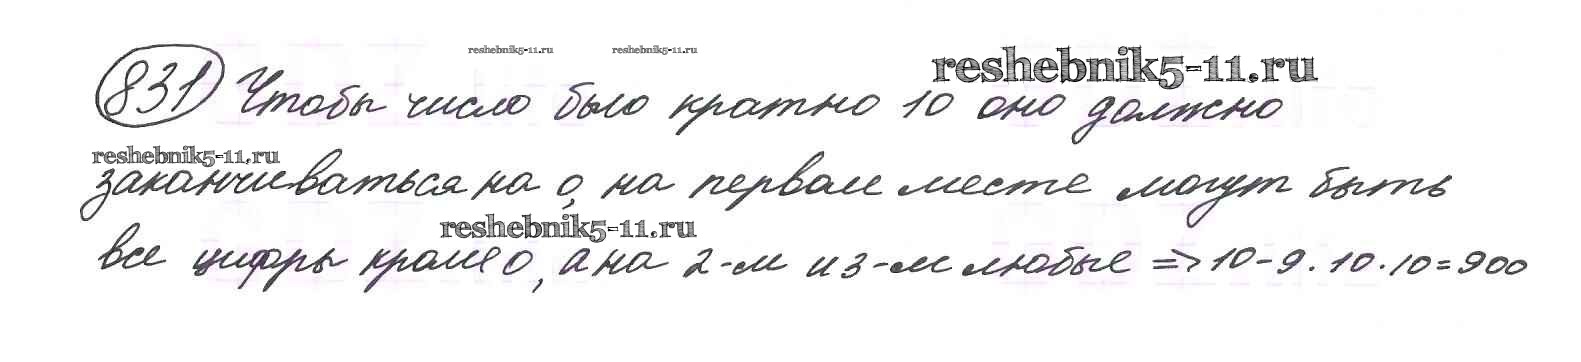 reshebnik5-11.ru reshebnik5-11.ru
reshebnik5-11.ru
831 Чтобы число было кратно 10 оно должно
reshebnik5-11.ru
заканчиваться на 0, на первом месте могут быть
reshebnik5-11.ru
все цифры кроме 0, а на 2-м и 3-м любые => 10-9·10·10=900